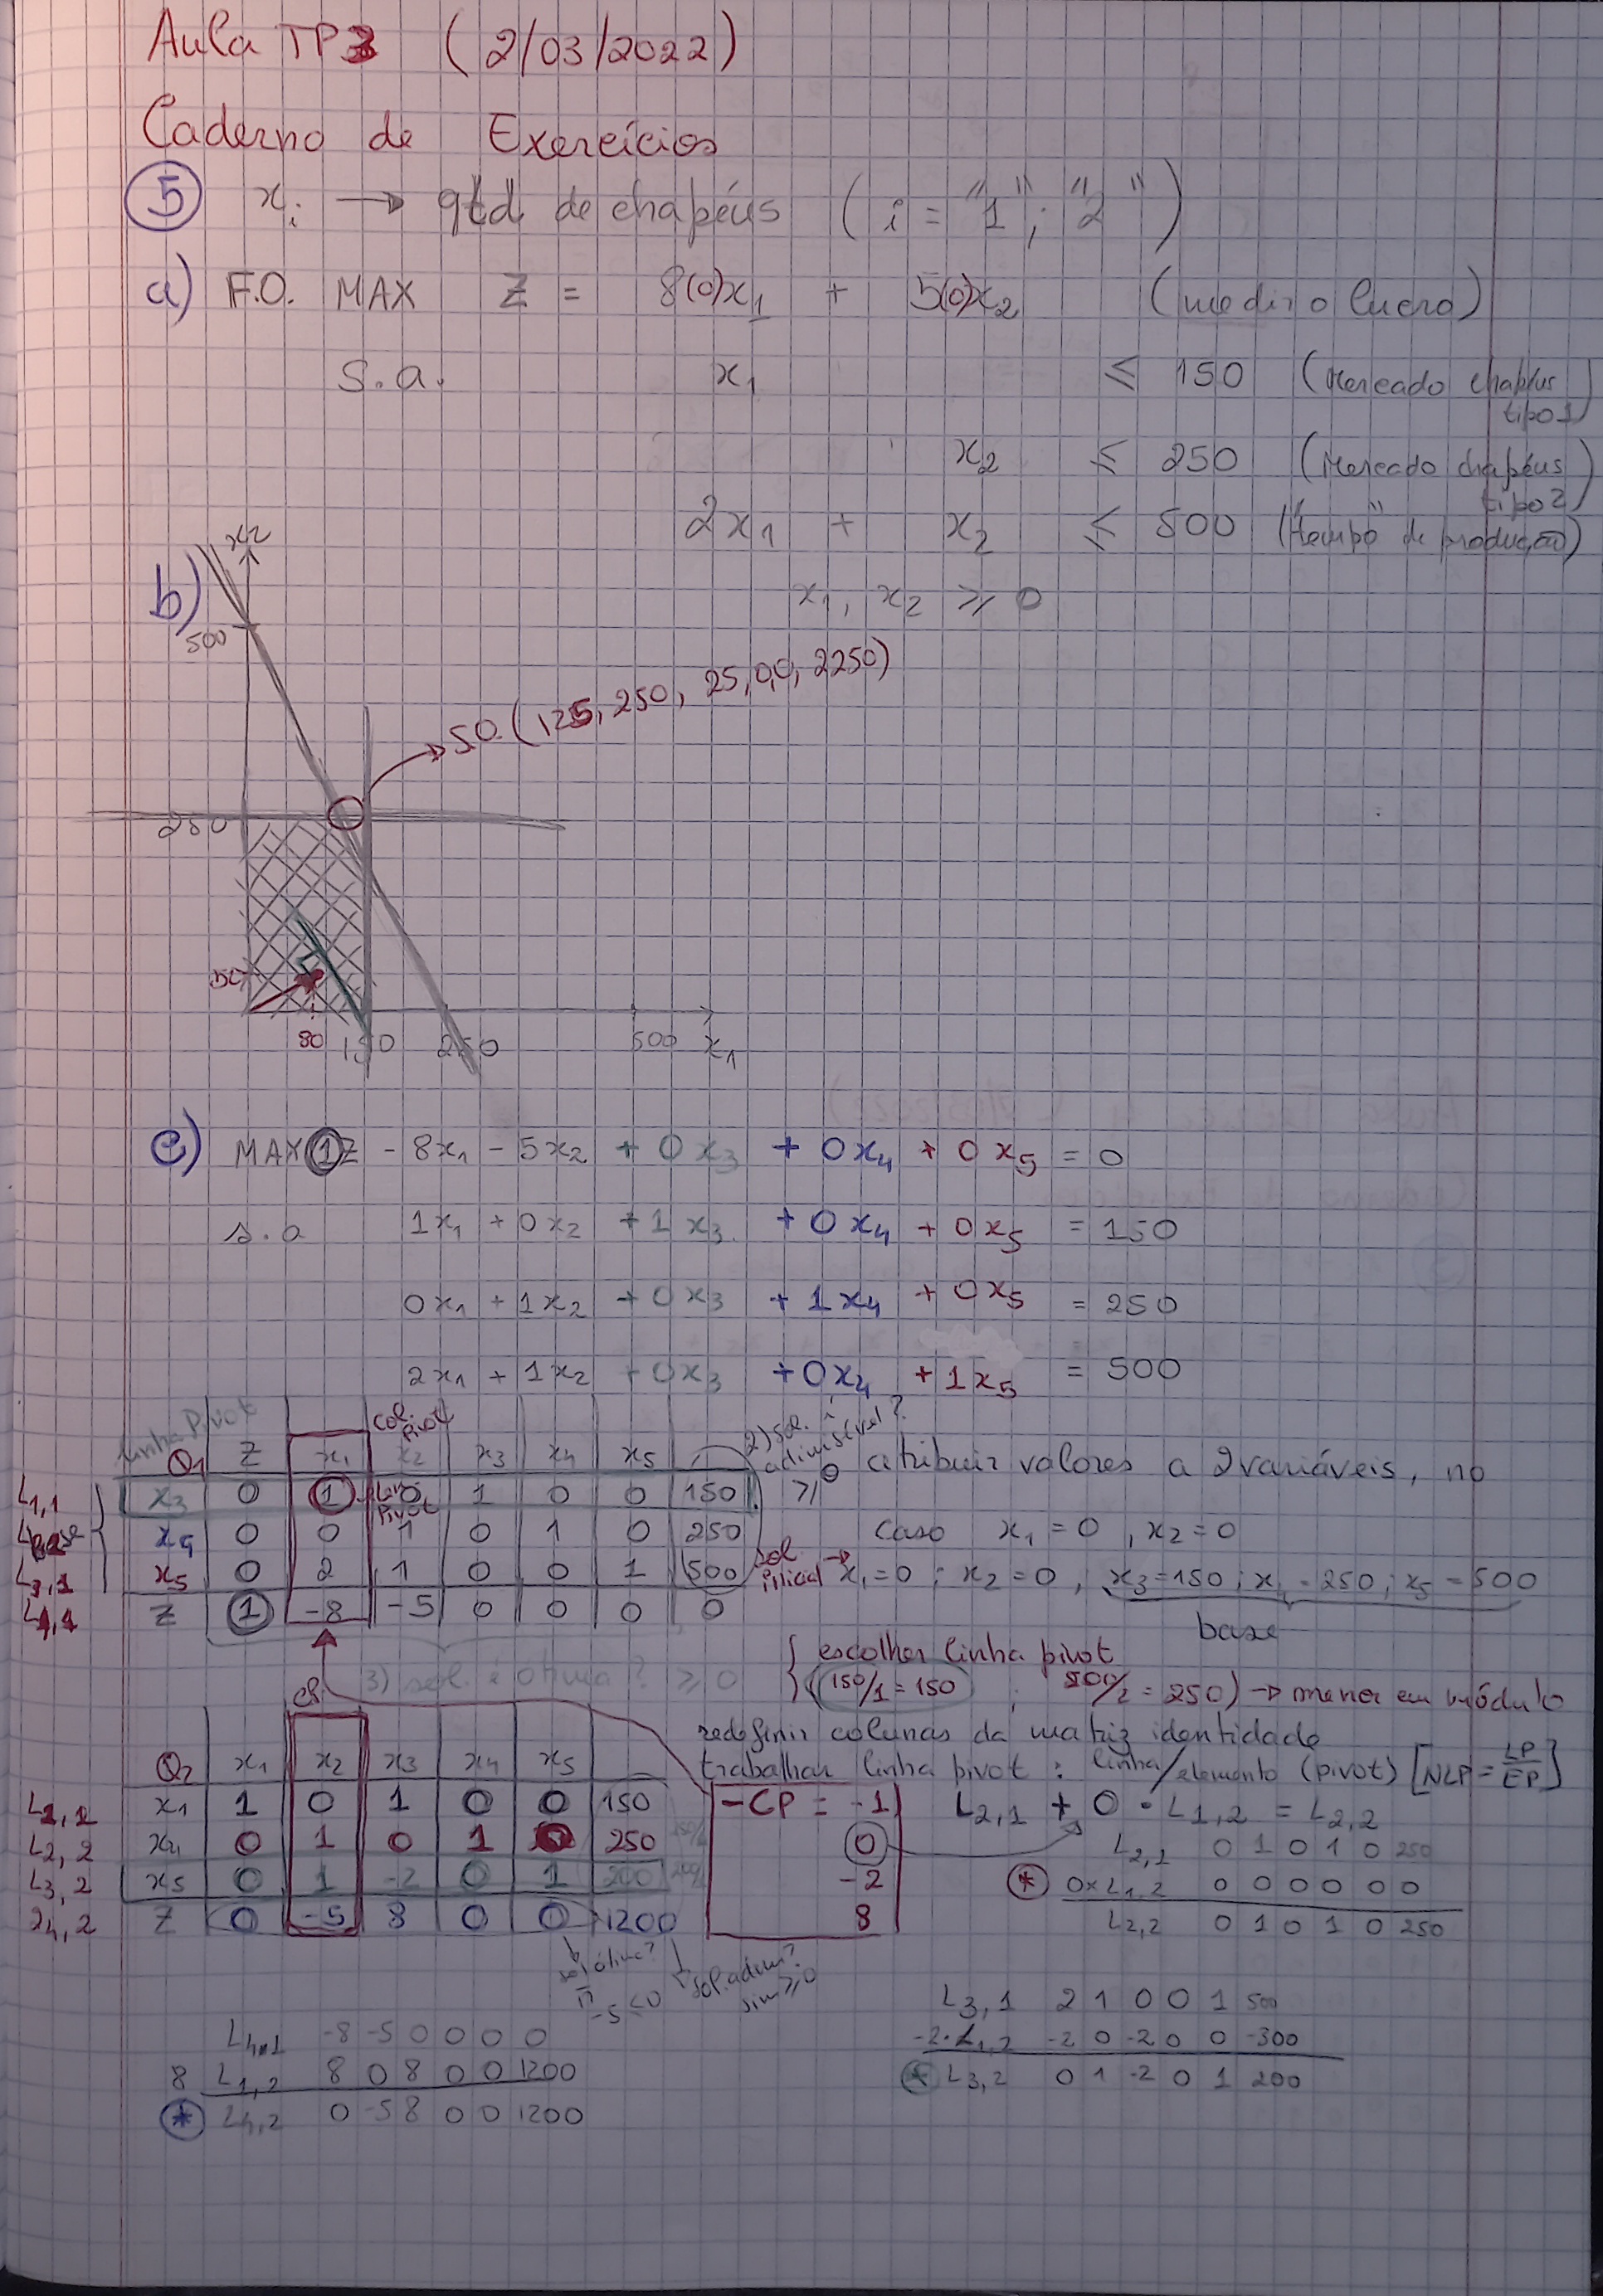 Aula TP3 (2/03/2022)
Caderno de Exercícios
5 xi → qtd de chapéus (i = "1" ; "2")
a) F.O. MAX Z = 8(0)x1 + 5(0)x2 (medir o lucro)
s.a. x1 ≤ 150 (Mercado chapéus tipo 1)
x2 ≤ 250 (Mercado chapéus tipo 2)
2x1 + x2 ≤ 500 ("tempo" de produção)
x1, x2 ≥ 0
b)
x2
500
S.O. (125, 250, 25, 0, 0, 2250)
250
50
80 150 250 500 x1
c) MAX 1Z - 8x1 - 5x2 + 0x3 + 0x4 + 0x5 = 0
s.a 1x1 + 0x2 + 1x3 + 0x4 + 0x5 = 150
0x1 + 1x2 + 0x3 + 1x4 + 0x5 = 250
2x1 + 1x2 + 0x3 + 0x4 + 1x5 = 500
Linha Pivot col. Pivot 2) sol. é admissível? ≥ 0
Q1 Z x1 x2 x3 x4 x5
L1,1 x3 0 1 0 1 0 0 150
base x4 0 0 1 0 1 0 250
L3,1 x5 0 2 1 0 0 1 500
L4,1 Z 1 -8 -5 0 0 0 0
Lin Pivot
atribuir valores a 2 variáveis, no
caso x1 = 0, x2 = 0
sol. inicial → x1 = 0 ; x2 = 0, x3 = 150 ; x4 = 250 ; x5 = 500
base
3) sol. é ótima? ≥ 0
escolher linha pivot
(150/1 = 150 ; 500/2 = 250) → menor em módulo
redefinir colunas da matriz identidade
trabalhar linha pivot : linha/elemento (pivot) [NLP = LP/EP]
CP
Q2 x1 x2 x3 x4 x5
L1,2 x1 1 0 1 0 0 150
L2,2 x4 0 1 0 1 0 250
L3,2 x5 0 1 -2 0 1 200
L4,2 Z 0 -5 8 0 0 1200
-CP = -1
0
-2
8
L2,1 + 0 · L1,2 = L2,2
L2,1 0 1 0 1 0 250
* 0×L1,2 0 0 0 0 0 0
L2,2 0 1 0 1 0 250
sol ótima?
-5 ≤ 0
sol. adm? sim ≥ 0
L3,1 2 1 0 0 1 500
-2·L1,2 -2 0 -2 0 0 -300
* L3,2 0 1 -2 0 1 200
L4,1 -8 -5 0 0 0 0
8 L1,2 8 0 8 0 0 1200
* L4,2 0 -5 8 0 0 1200